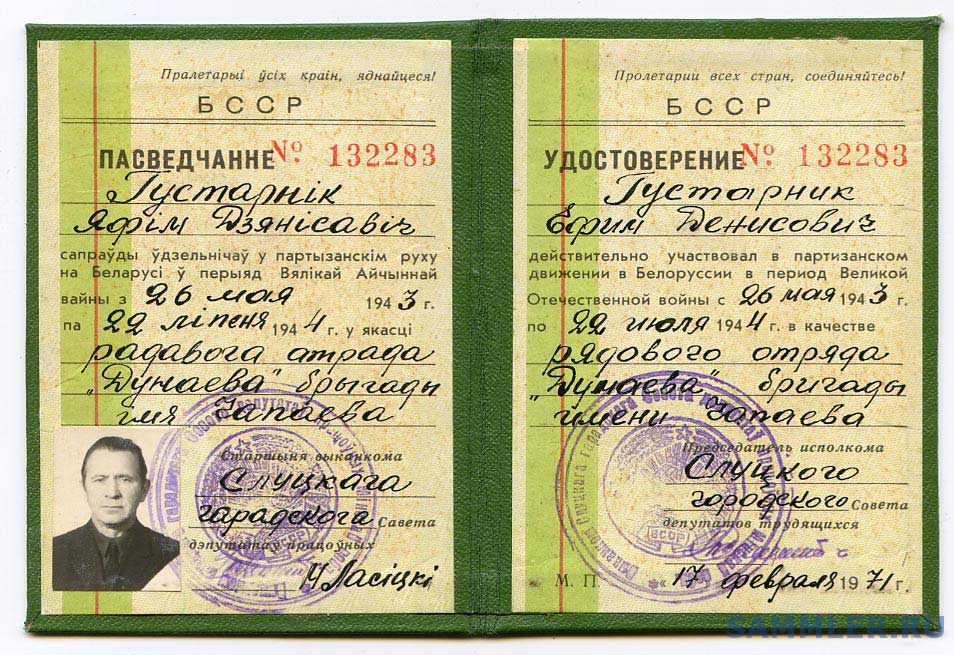 Пралетарыі ўсіх краін, яднайцеся!
БССР
ПАСВЕДЧАННЕ № 132283
Густарнік
Яфім Дзянісавіч
сапраўды ўдзельнічаў у партызанскім руху
на Беларусі ў перыяд Вялікай Айчыннай
вайны з 26 мая 1943 г.
па 22 ліпеня 1944 г. у якасці
радавога атрада
"Дунаева" брыгады
імя Чапаева
Старшыня выканкома
Слуцкага
гарадскога Савета
дэпутатаў працоўных
Ласіцкі
Пролетарии всех стран, соединяйтесь!
БССР
УДОСТОВЕРЕНИЕ № 132283
Густарник
Ефим Денисович
действительно участвовал в партизанском
движении в Белоруссии в период Великой
Отечественной войны с 26 мая 1943 г.
по 22 июля 1944 г. в качестве
рядового отряда
"Дунаева" бригады
имени Чапаева
Председатель исполкома
Слуцкого
городского Совета
депутатов трудящихся
М. П. "17 февраля 1971 г.
БССР
SAMMLER.RU